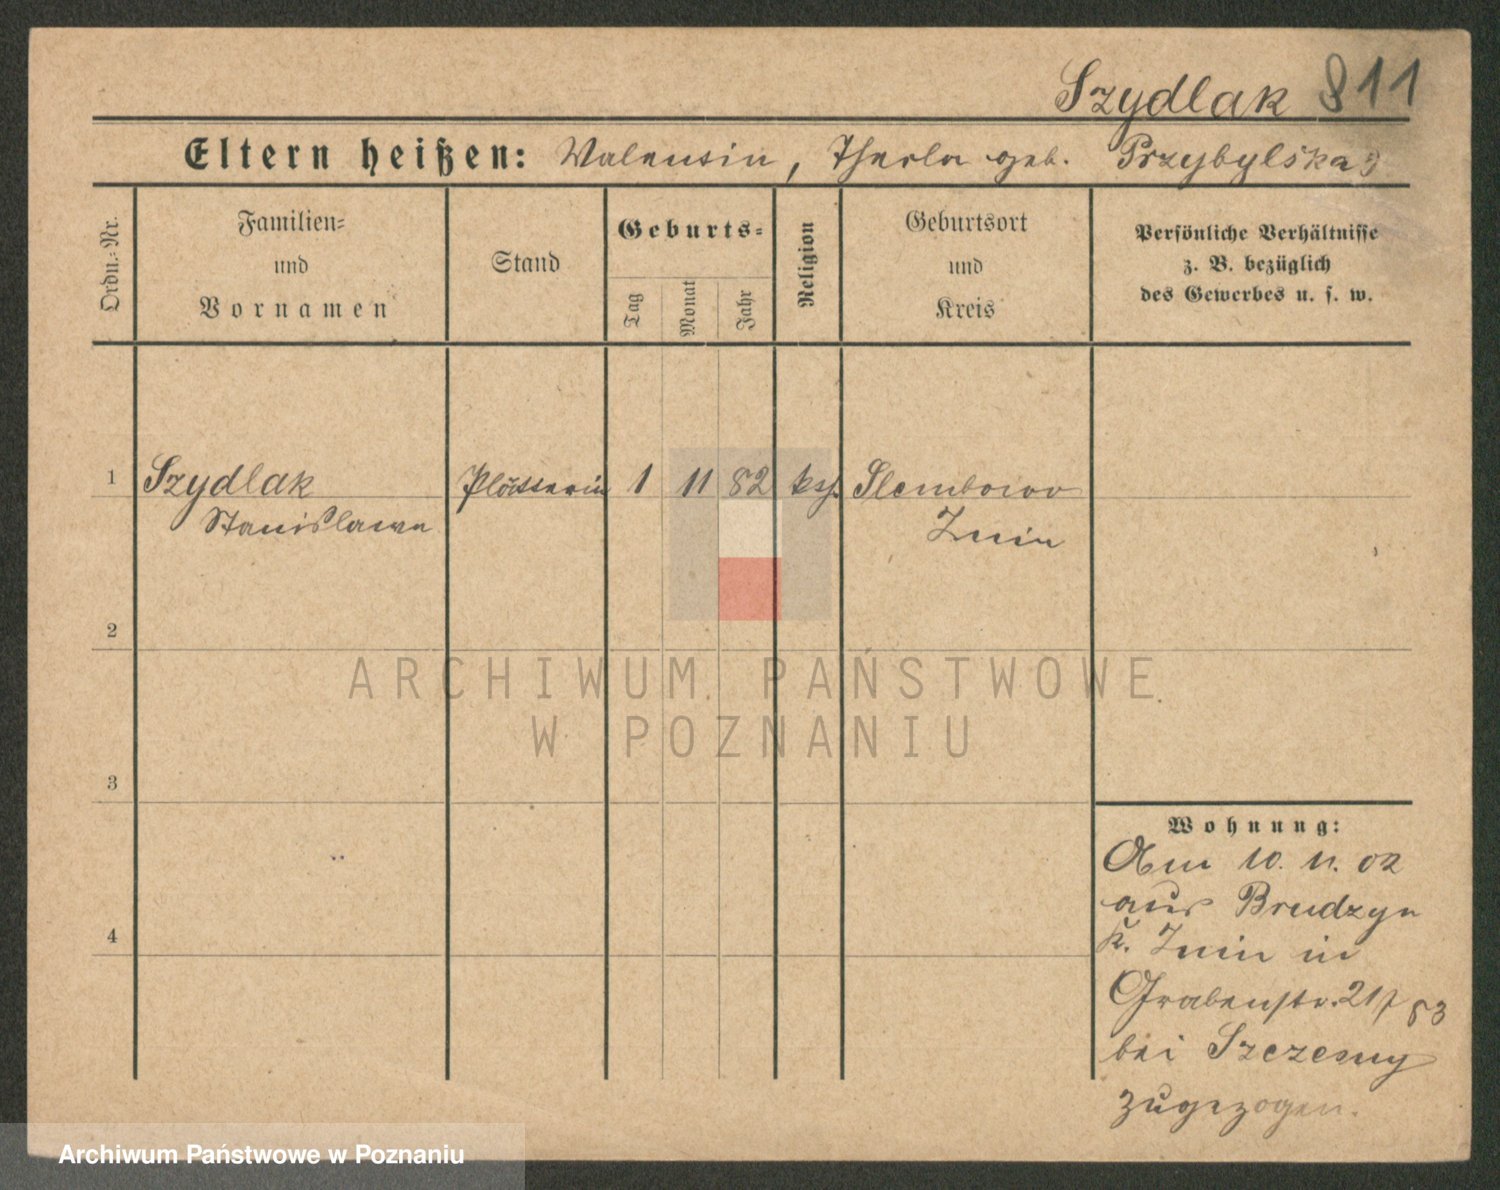 Szydlak 811
Eltern heißen: Valentin, Thekla geb. Przybylska
Ordn.-Nr.
Familien-
und
Vornamen
Stand
Geburts-
Tag
Monat
Jahr
Religion
Geburtsort
und
Kreis
Persönliche Verhältnisse
z. B. bezüglich
des Gewerbes u. s. w.
1 Szydlak Plätterin 1 11 82 kth. Slembowo
Stanislawa Znin
2
ARCHIWUM PAŃSTWOWE
W POZNANIU
3
Wohnung:
Am 10. 11. 02
aus Brudzyn
4
K. Znin in
Grabenstr. 21
bei Szczesny
zugezogen.
Archiwum Państwowe w Poznaniu